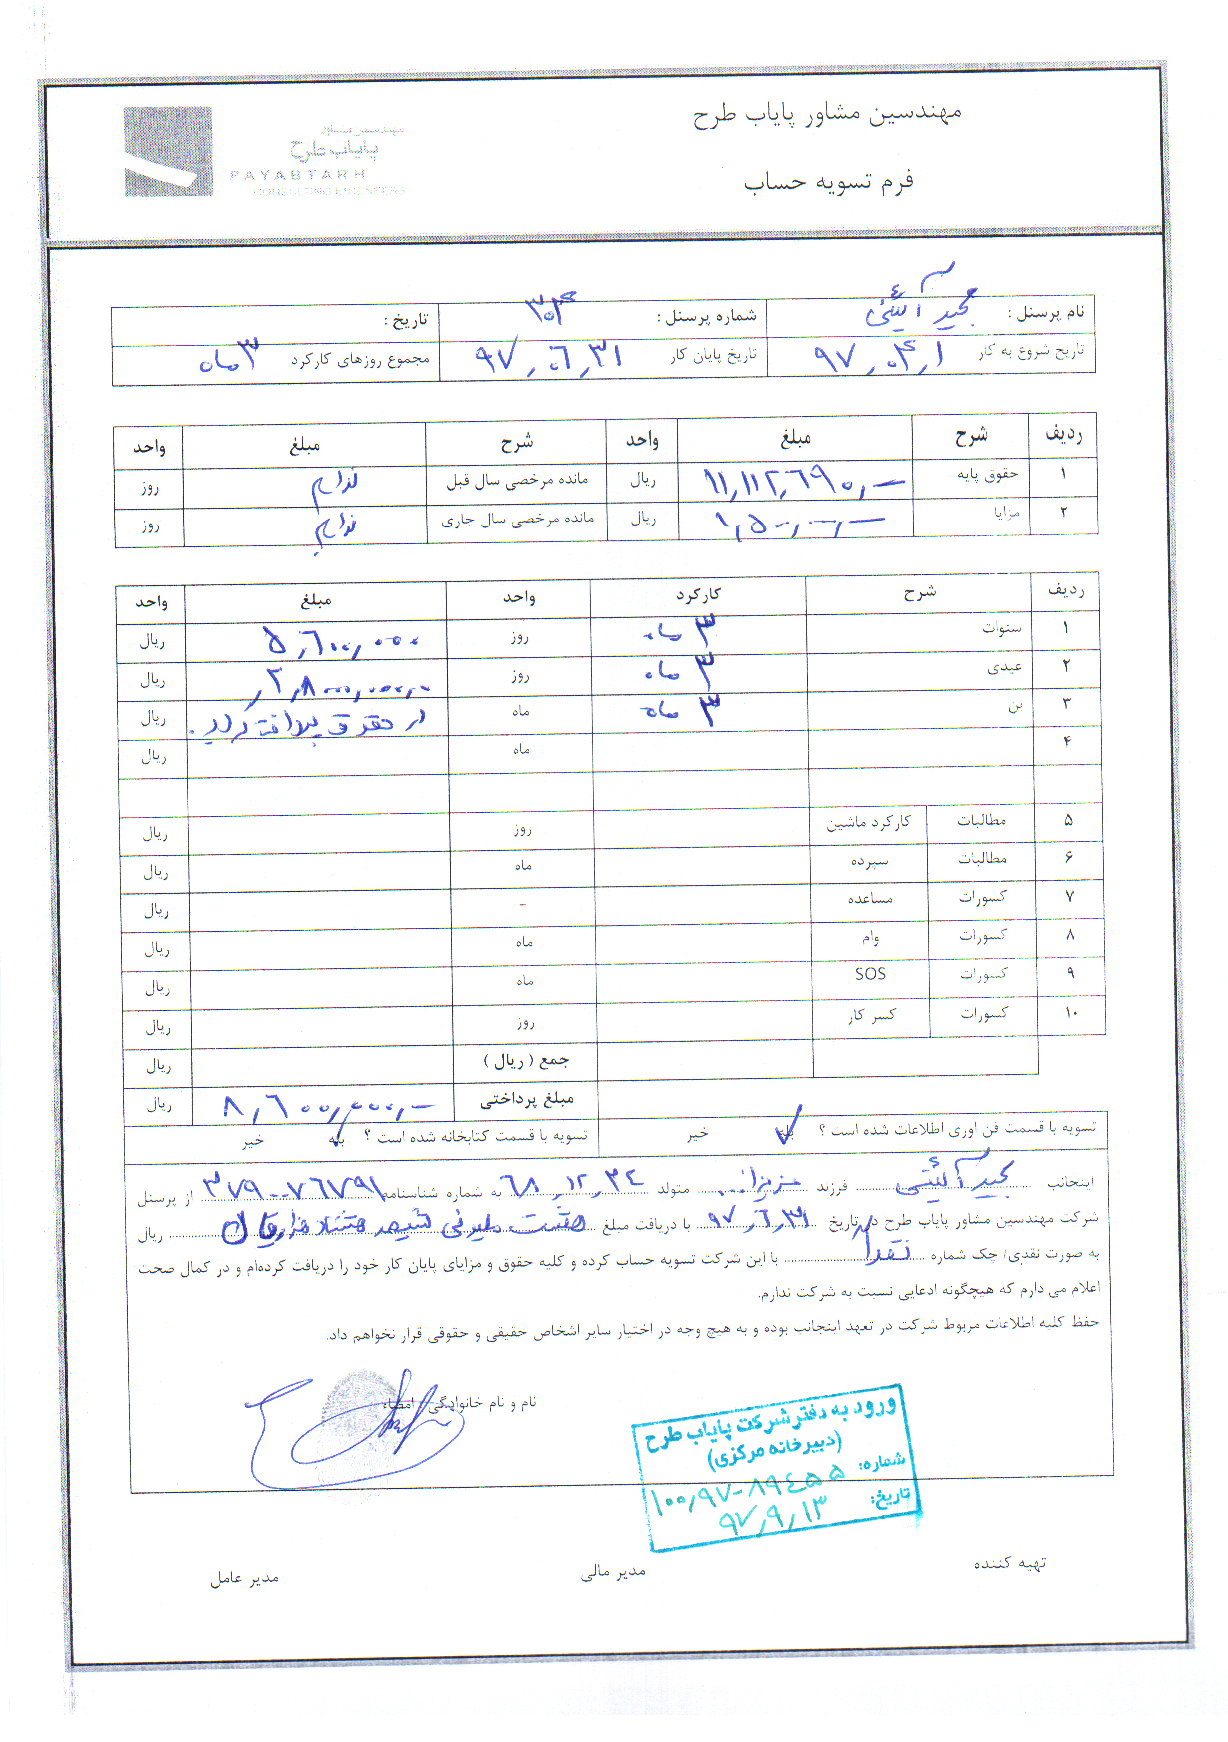 مهندسین مشاور پایاب طرح
مهندسین مشاور
پایاب طرح
PAYABTARH
CONSULTING ENGINEERS
فرم تسویه حساب
نام پرسنل : مجید آئینی شماره پرسنل : ۳۰۴ تاریخ :
تاریخ شروع به کار ۹۷,۰۴,۱ تاریخ پایان کار ۹۷,۰۶,۳۱ مجموع روزهای کارکرد ۳ ماه
ردیف شرح مبلغ واحد شرح مبلغ واحد
۱ حقوق پایه ۱۱,۱۱۲,۶۹۰,- ریال مانده مرخصی سال قبل ندارم روز
۲ مزایا ۱,۵۰۰,۰۰۰,- ریال مانده مرخصی سال جاری ندارم روز
ردیف شرح کارکرد واحد مبلغ واحد
۱ سنوات ۳ ماه روز ۵,۶۰۰,۰۰۰ ریال
۲ عیدی ۳ ماه روز ریال
۳ بن ۳ ماه ماه در حقوق پرداخت گردید. ریال
۴ ماه ریال
۵ مطالبات کارکرد ماشین روز ریال
۶ مطالبات سپرده ماه ریال
۷ کسورات مساعده - ریال
۸ کسورات وام ماه ریال
۹ کسورات SOS ماه ریال
۱۰ کسورات کسر کار روز ریال
جمع ( ریال ) ریال
مبلغ پرداختی ۸,۶۰۰,۰۰۰,- ریال
تسویه با قسمت فن اوری اطلاعات شده است ؟ بله خیر تسویه با قسمت کتابخانه شده است ؟ بله خیر
اینجانب مجید آئینی فرزند متولد ۶۸,۱۲,۲۴ به شماره شناسنامه ۳۷۹۰۰۷۶۷۹۱ از پرسنل
شرکت مهندسین مشاور پایاب طرح در تاریخ ۹۷,۶,۳۱ با دریافت مبلغ هشت ملیون ششصد ریال
به صورت نقدی/ چک شماره نقدا با این شرکت تسویه حساب کرده و کلیه حقوق و مزایای پایان کار خود را دریافت کرده‌ام و در کمال صحت
اعلام می دارم که هیچگونه ادعایی نسبت به شرکت ندارم.
حفظ کلیه اطلاعات مربوط شرکت در تعهد اینجانب بوده و به هیچ وجه در اختیار سایر اشخاص حقیقی و حقوقی قرار نخواهم داد.
نام و نام خانوادگی / امضاء
ورود به دفتر شرکت پایاب طرح
(دبیرخانه مرکزی)
شماره: ۱۰۰,۹۷-۸۹۴۵۵
تاریخ: ۹۷,۹,۱۳
تهیه کننده مدیر مالی مدیر عامل